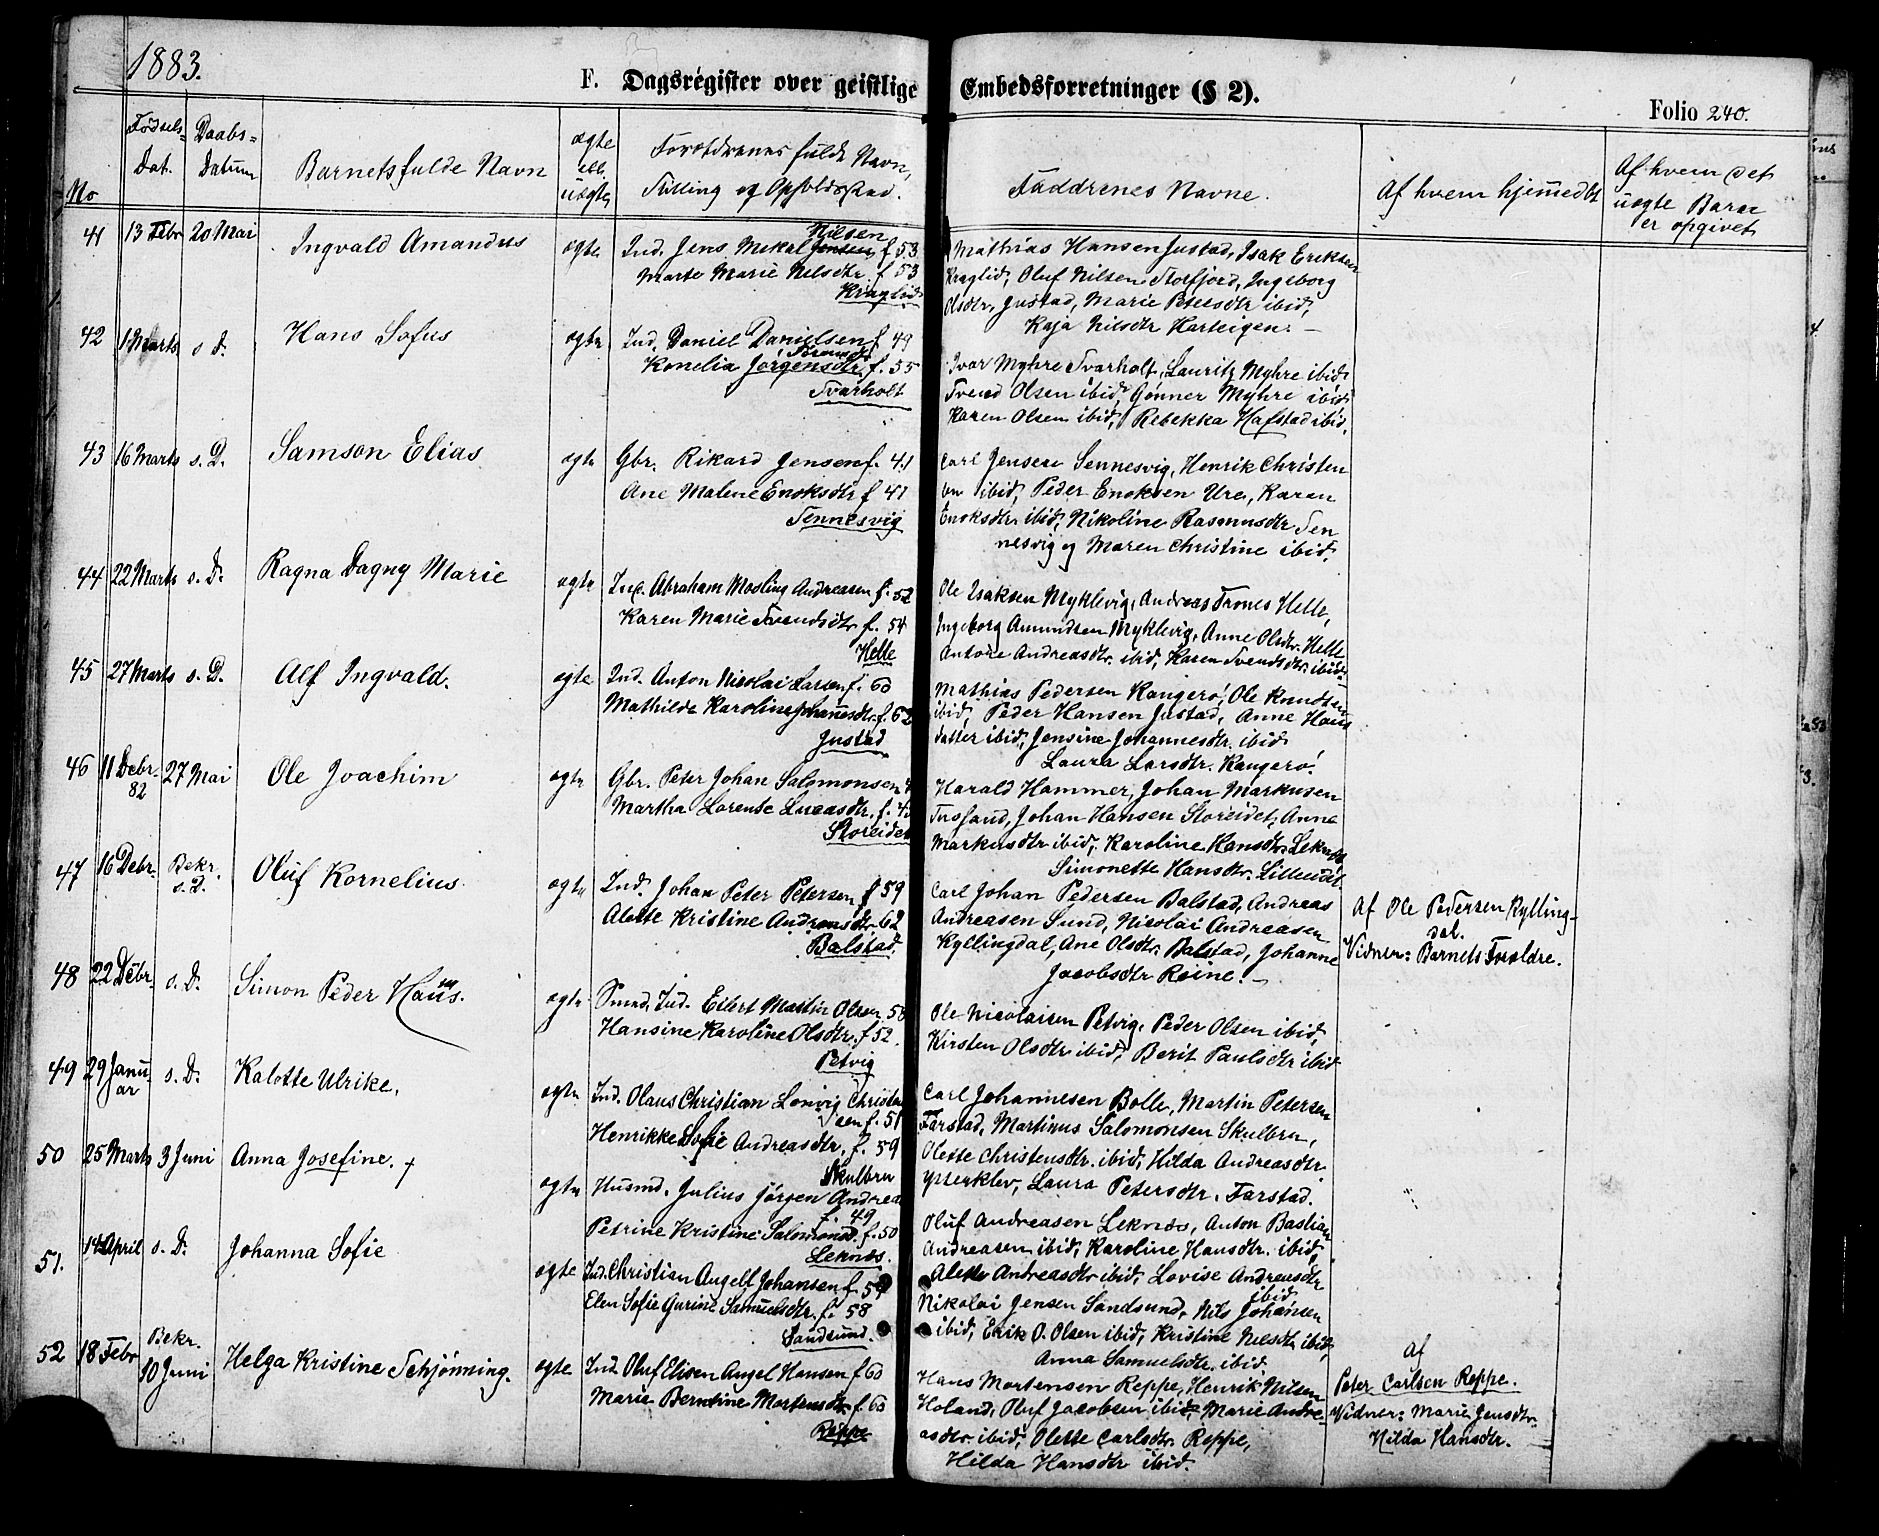 1883.
F. Dagsregister over geistlige Embedsforretninger (§ 2).
Folio 240.
No
Fødsels-
Dat.
Daabs-
Datum
Barnets fulde Navn
ægte
ell.
uægte
Forældrenes fulde Navn,
Stilling og Opholdssted.
Faddrenes Navne.
Af hvem hjemmedbt
Af hvem det
uægte Barn
er opgivet
41 13 Febr 20 Mai Ingvald Amandus ægte
Nilsen
Ind. Jens Mikal Jensen f 53
Marte Marie Nilsdtr. f 53
Kraglid
Mathias Hansen Justad, Isak Eriksen
Kraglid, Oluf Nilsen Storfjord, Ingeborg
Olsdtr. Justad, Marie Petersdtr ibid,
Kaja Nilsdtr Harteigen. –
42 1 Marts s d. Hans Sofus ægte
Ind. Daniel Danielsen f 49
Konelia Jørgensdtr. f. 55
Tvarholt
Ivar Myhre Svarholt, Lauritz Myhre ibid
Svend Olsen ibid, Gønner Myhre ibid
Karen Olsen ibid, Rebekka Hafstad ibid.
43 16 Marts s. D. Samson Elias ægte
Gbr. Rikard Jensen f. 41
Ane Malene Enoksdtr f 41
Sennesvig
Carl Jensen Sennesvig, Henrik Christen
sen ibid, Peder Enoksen Ure, Karen
Enoksdtr ibid, Nikoline Rasmusdtr Sen
nesvig og Maren Christine ibid.
44 22 Marts s. D. Ragna Dagny Marie ægte
Ind. Abraham Mosling Andreasen f. 52
Karen Marie Svendsdtr f. 54
Helle
Ole Isaksen Myklevig, Andreas Trones Helle,
Ingeborg Amundsen Myklevig, Anne Olsdtr. Helle
Antone Andreasdtr. ibid, Karen Svendsdtr. ibid
45 27 Marts s. D. Alf Ingvald. ægte
Ind. Anton Nicolai Larsen f. 60
Mathilde Karoline Johannesdtr. f. 62
Justad
Mathias Pedersen Kangerø, Ole Knudsen
ibid, Peder Hansen Justad, Anne Hans
datter ibid, Jensine Johannesdtr. ibid
Laura Larsdtr. Kangerø.
46 11 Debr. 82 27 Mai Ole Joachim ægte
Gbr. Peter Johan Salomonsen
Martha Lorentse Lucasdtr. f. 43
Storeidet
Harald Hammer, Johan Markusen
Johan Hansen Storeidet, Anne
Markusdtr ibid, Karoline Hansdtr. Leknæs
Simonette Hansdtr. Lilleeidet
47 16 Debr. Bekr. s. D. Oluf Kornelius. ægte
Ind. Johan Peter Petersen f 59
Alette Kristine Andreasdtr 62
Balstad.
Carl Johan Pedersen Balstad, Andreas
Andreasen Sund, Nicolai Andreasen
Kyllingdal, Ane Olsdtr. Balstad, Johanne
Jacobsdtr Reine. –
Af Ole Pedersen Kylling-
dal.
Vidner: Barnets Forældre.
48 22 Debr. s. D. Simon Peder Hans. ægte
Ind. Eilert Martin Olsen 58
Hansine Karoline Olsdtr. f 52.
Petvig
Ole Nicolaisen Petvig, Peder Olsen ibid,
Kirsten Olsdtr ibid, Berit Paulsdtr ibid
49 29 Janu-
ar s. D. Kalotte Ulrike. ægte
Ind. Olaus Christian Lonvig Christen
sen f. 51
Henrikke Sofie Andreasdtr, f. 59
Skulbru
Carl Johannesen Bolle, Martin Petersen
Farstad, Martinus Salomonsen Skulbru,
Olette Christensdtr. ibid, Hilda Andreasdtr.
Ytterklev, Laura Petersdtr. Farstad.
50 25 Marts 3 Juni Anna Josefine. † ægte
Husmd. Julius Jørgen Andrea
f. 49
Petrine Kristine Salomonsd. f. 50
Leknæs.
Oluf Andreasen Leknæs, Anton Bastian
Andreasen ibid, Karoline Hansdtr. ibid,
Alette Andreasdtr ibid, Lovise Andreasdtr
ibid
51. 14 April s. D. Johanna Sofie ægte
Ind. Christian Angell Johansen f. 59
Elen Sofie Gurine Samuelsdtr. f. 58
Sandsund.
Nikolai Jensen Sandsund, Nils Johansen
ibid, Erik O. Olsen ibid, Kristine Nilsdtr ibid,
Anna Samuelsdtr. ibid.
52 18 Febr Bekr. 10 Juni Helga Kristine Schjønning. ægte
Ind Oluf Elisen Angel Hansen f 60
Marie Berntine Mortensdtr f. 60
Reppe
Hans Mortensen Reppe, Henrik Nilsen
Holand, Oluf Jacobsen ibid, Marie Andre-
asdtr ibid, Olette Carlsdtr. Reppe,
Hilda Hansdtr ibid.
af
Peter Carlsen Reppe.
Vidner: Marie Jensdtr.
Hilda Hansdtr.